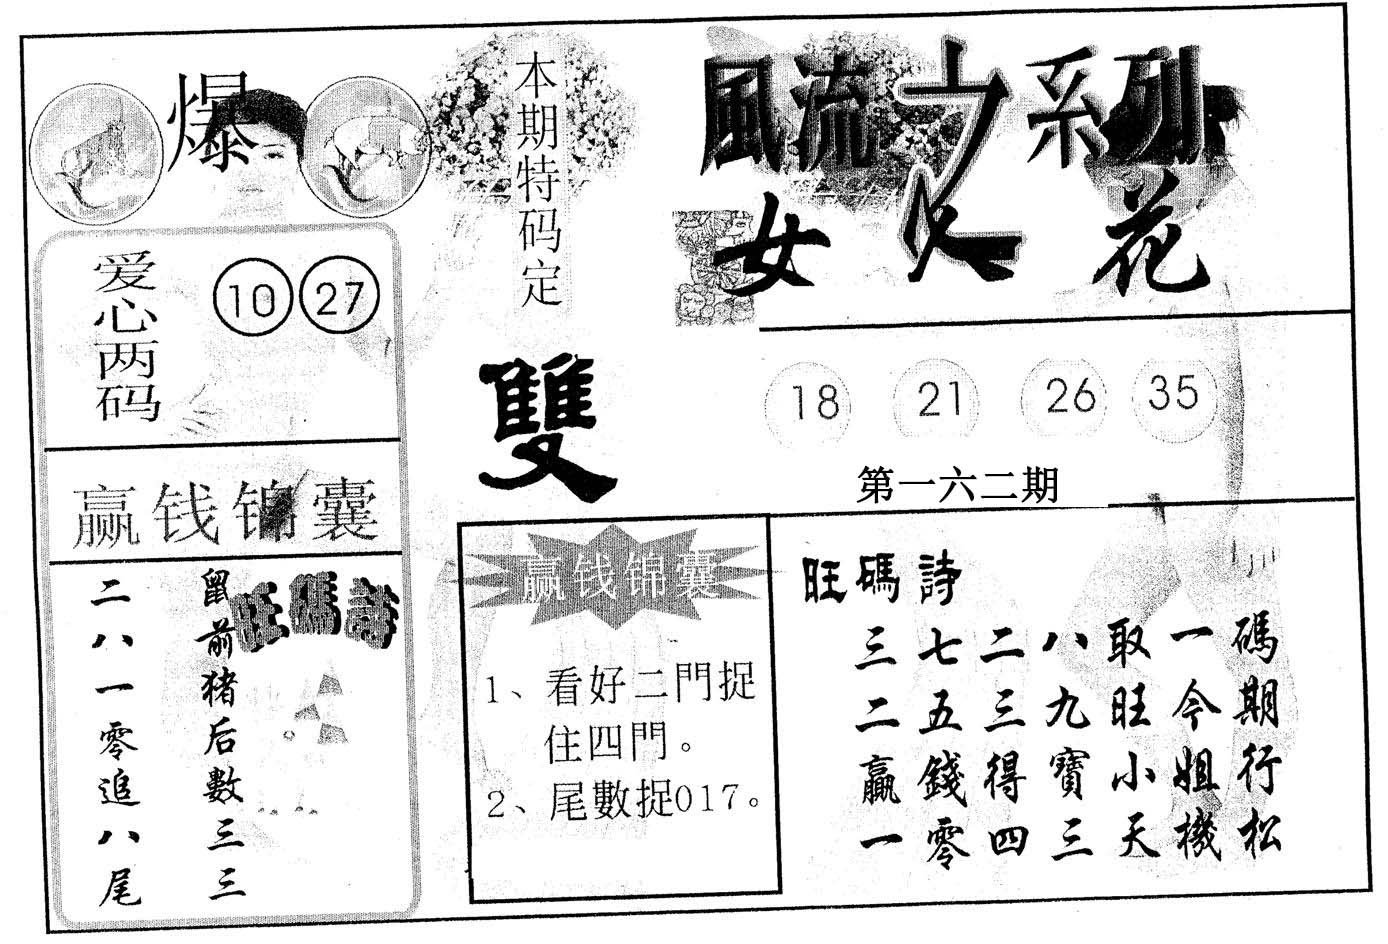 爆
本期特码定
雙
風流之系列
女人花
爱心两码
10 27
18 21 26 35
第一六二期
赢钱锦囊
旺碼詩
鼠前猪后數三三
二八一零追八尾
赢钱锦囊
1、看好二門捉
住四門。
2、尾數捉017。
旺碼詩
三七二八取一碼
二五三九旺今期
贏錢得寶小姐行
一零四三天機松